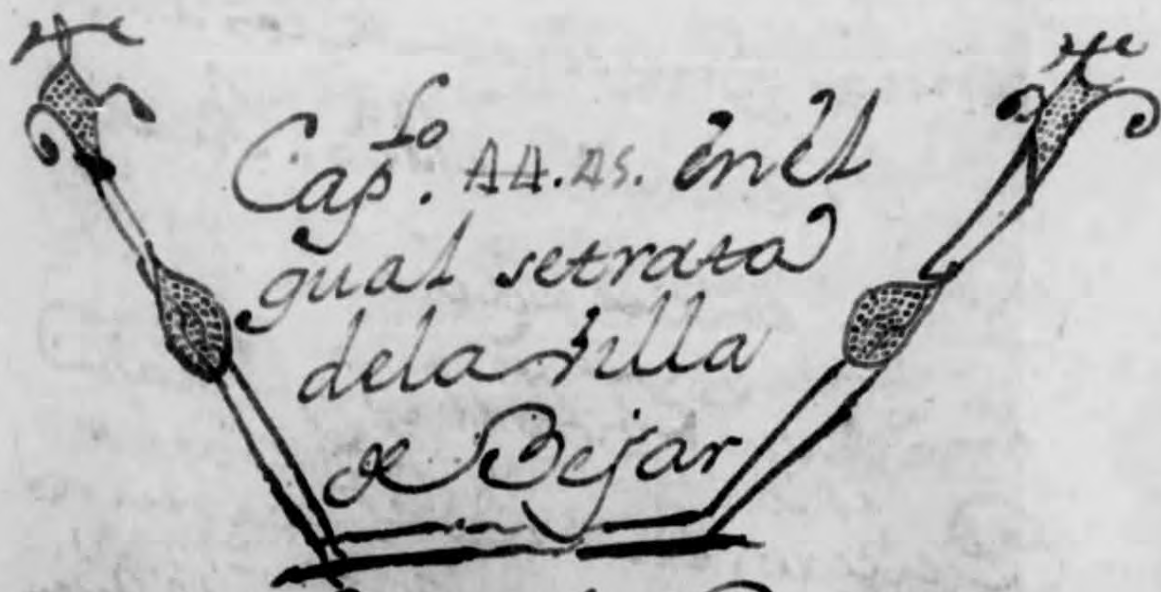 Cap.to AA.AS. en el
qual setrata
dela villa
de Bejar